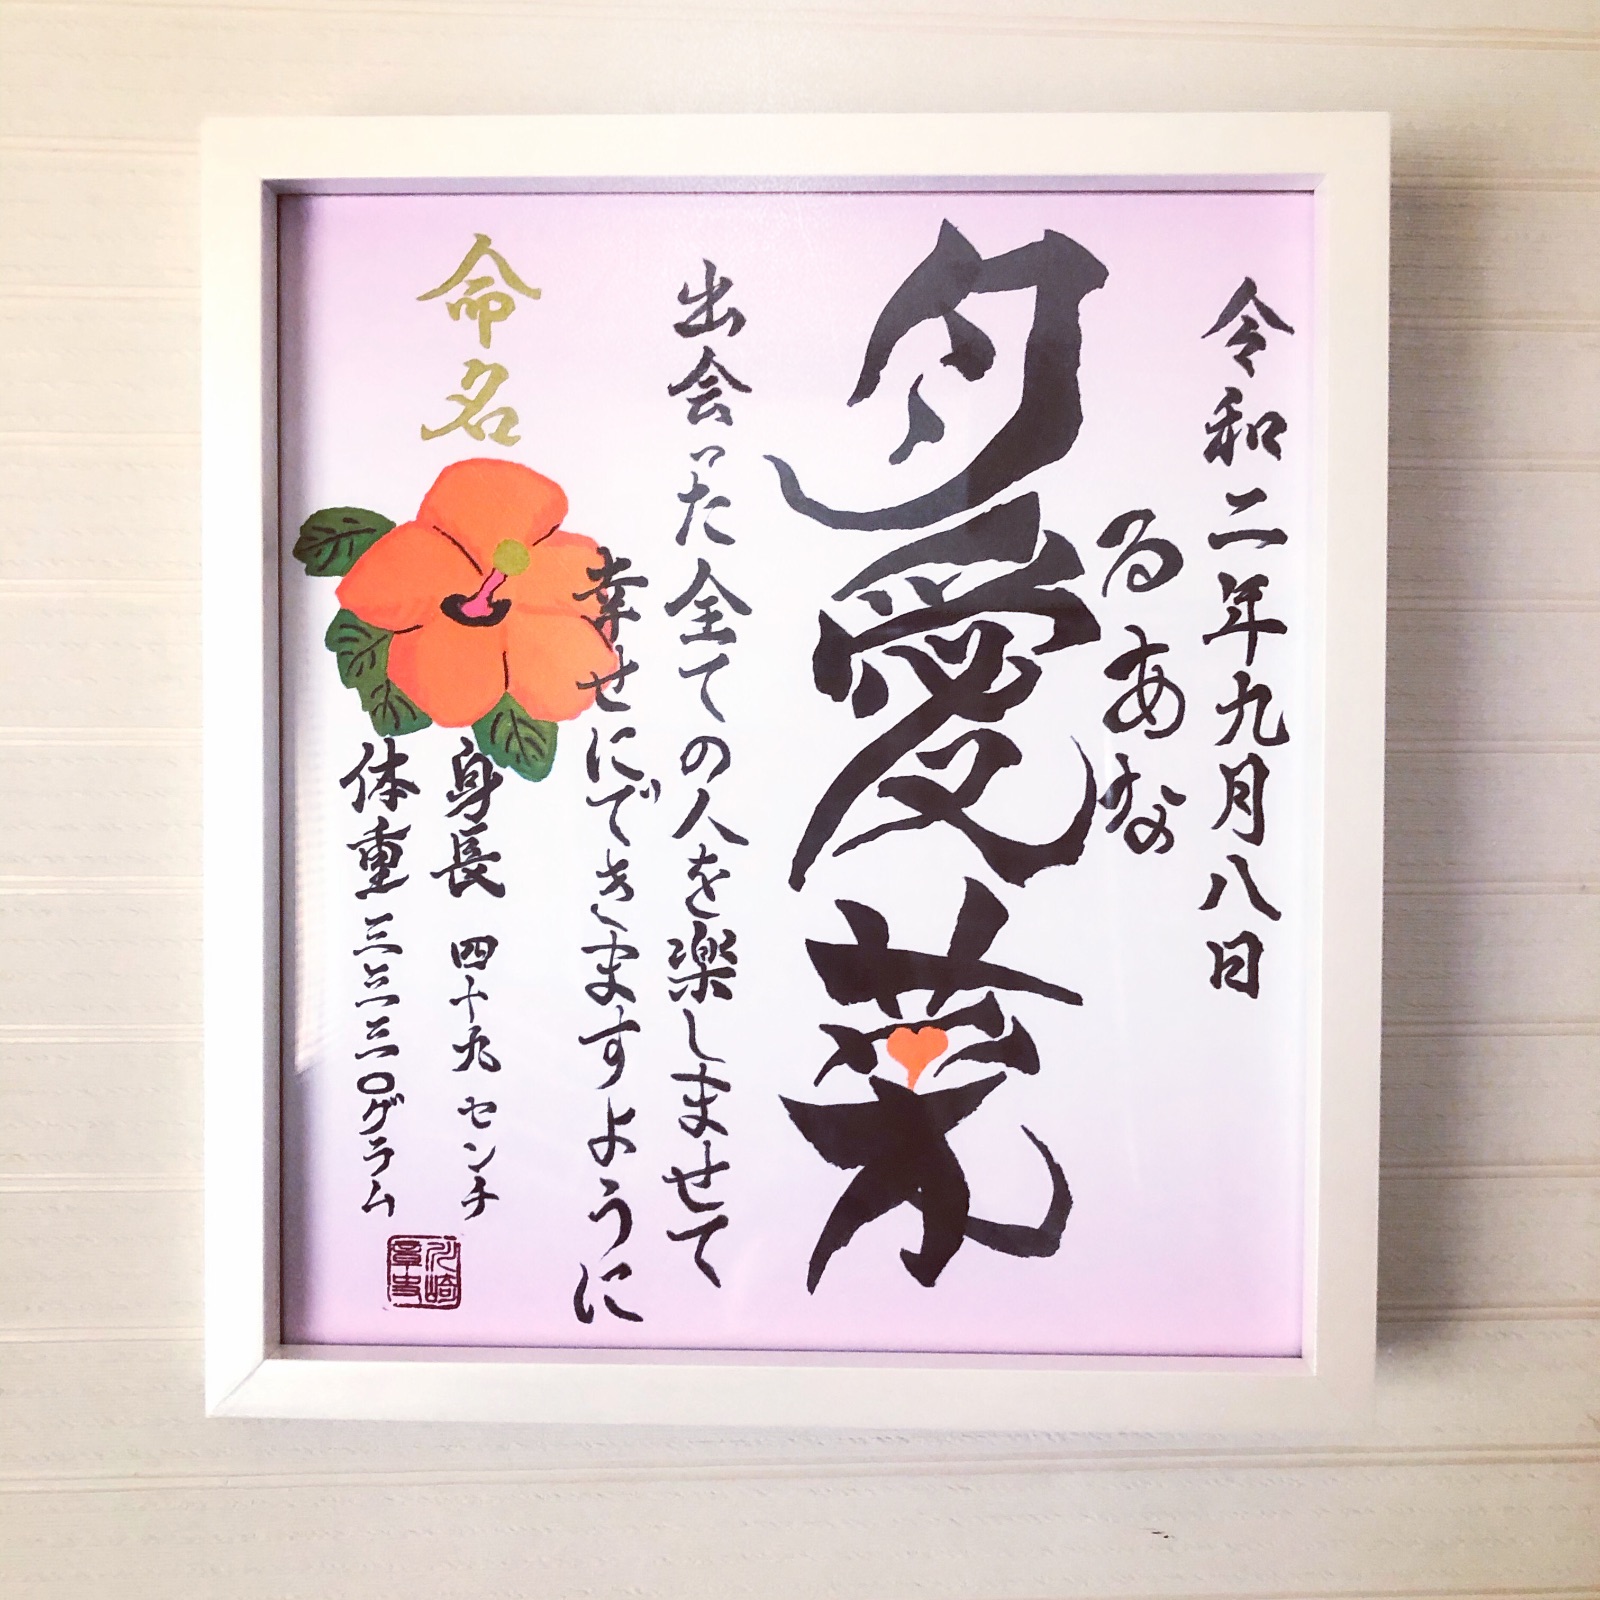 令和二年九月八日
るあな
月愛菜
出会った全ての人を楽しませて
幸せにできますように
命名
身長 四十九センチ
体重三三三〇グラム
川崎